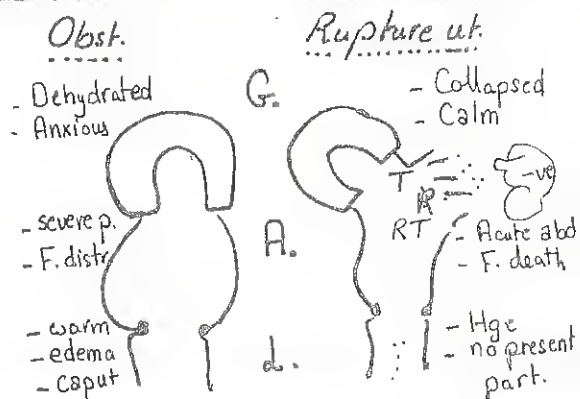 Obst.
Rupture ut.
- Dehydrated
- Anxious
G.
- Collapsed
- Calm
T
-ve
R
RT
- severe p.
- F. distr
A.
- Acute abd
- F. death
- warm
- edema
- caput
L.
- Hge
- no present
part.